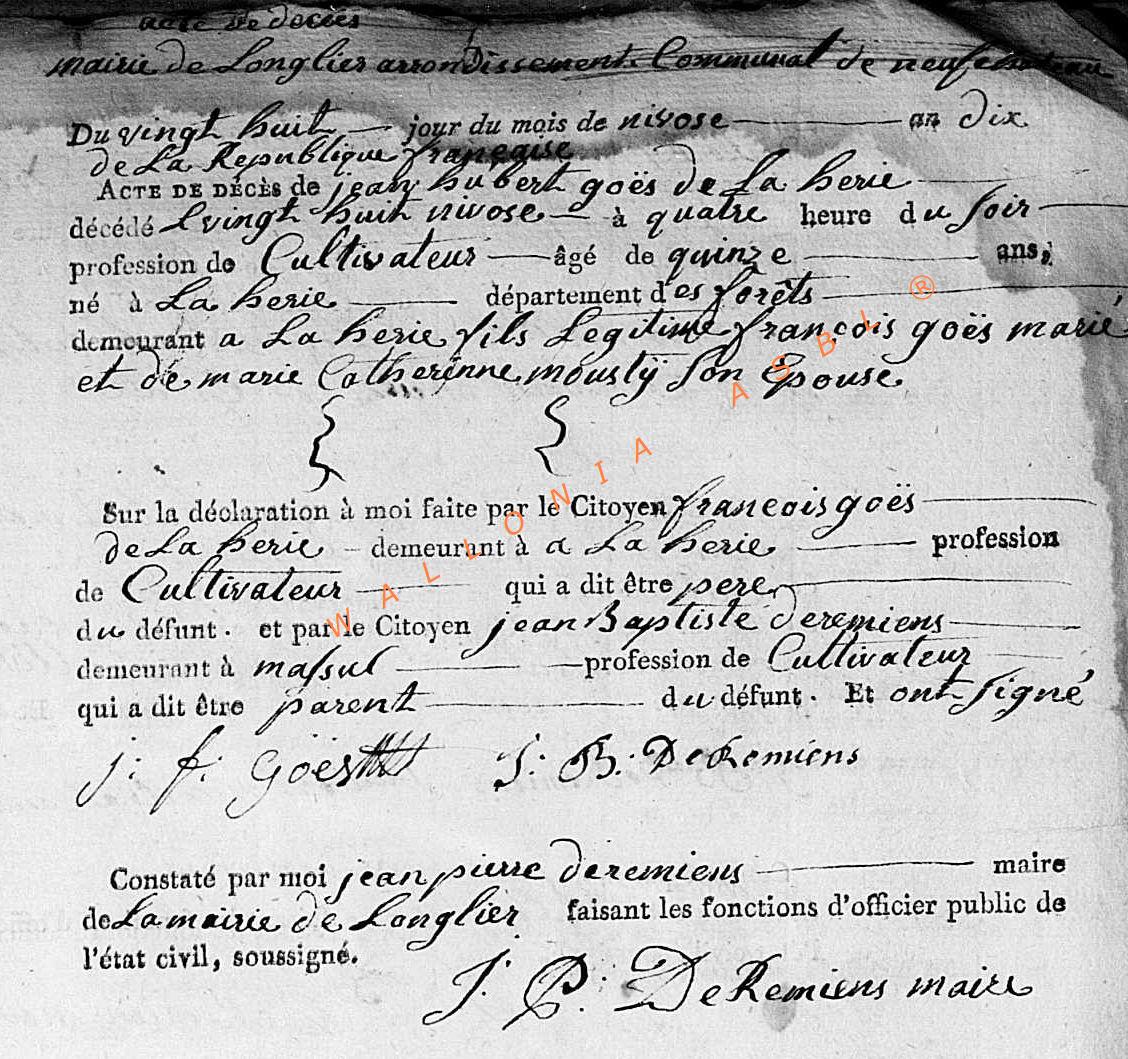 acte de décès
mairie de Longlier arrondissement Communal de neufchateau
Du vingt huit jour du mois de nivose an dix
de La Republique française
ACTE DE DÉCÈS de jean hubert goës de La herie
décédé le vingt huit nivose à quatre heure du soir
profession de Cultivateur âgé de quinze ans,
né à La herie département des forêts
demeurant a La herie fils Legitime françois goës marié
et de marie Catherinne moustÿ son Epouse.
Sur la déclaration à moi faite par le Citoyen francois goës
de La herie demeurant à a La herie profession
de Cultivateur qui a dit être pere
du défunt. et par le Citoyen jean Baptiste deremiens
demeurant à massul profession de Cultivateur
qui a dit être parent du défunt. Et ont signé
j: f: Goës J: B: DeRemiens
Constaté par moi jean pierre deremiens maire
de La mairie de Longlier faisant les fonctions d'officier public de
l'état civil, soussigné.
J: P: DeRemiens maire
WALLONIA ASBL ®